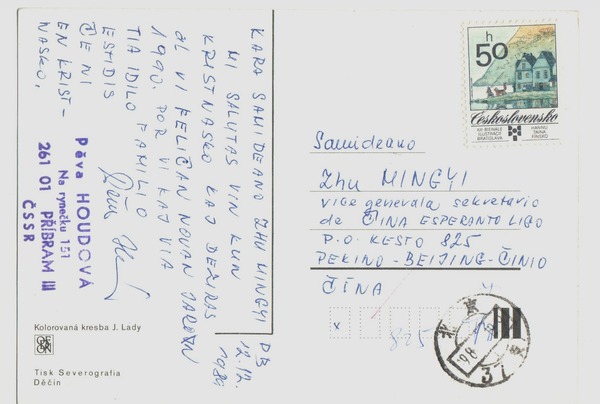 KARA SAMIDEANO ZHU MINGYI
MI SALUTAS VIN KUN
KRISTNASKO KAJ DEZIRAS
AL VI FELIĈAN NOVAN JARON
1990. POR VI KAJ VIA
TIA IDILO FAMILIO
ESTIDIS
ĈENI
EN KRIST-
NASKO.
PB
12.12.
1989
Děva HOUDOVÁ
Na rynečku 151
261 01 PŘÍBRAM III
ČSSR
Kolorovaná kresba J. Lady
Tisk Severografia
Děčín
h
50
Československo
XII BIENALE
ILUSTRACIÍ
BRATISLAVA
HANNU
TAINA
FINSKO
Samideano
Zhu MINGYI
vice generala sekretario
de ĈINA ESPERANTO LIGO
P.O. KESTO 825
PEKINO-BEIJING-ĈINIO
ČÍNA
x
825
北京
37